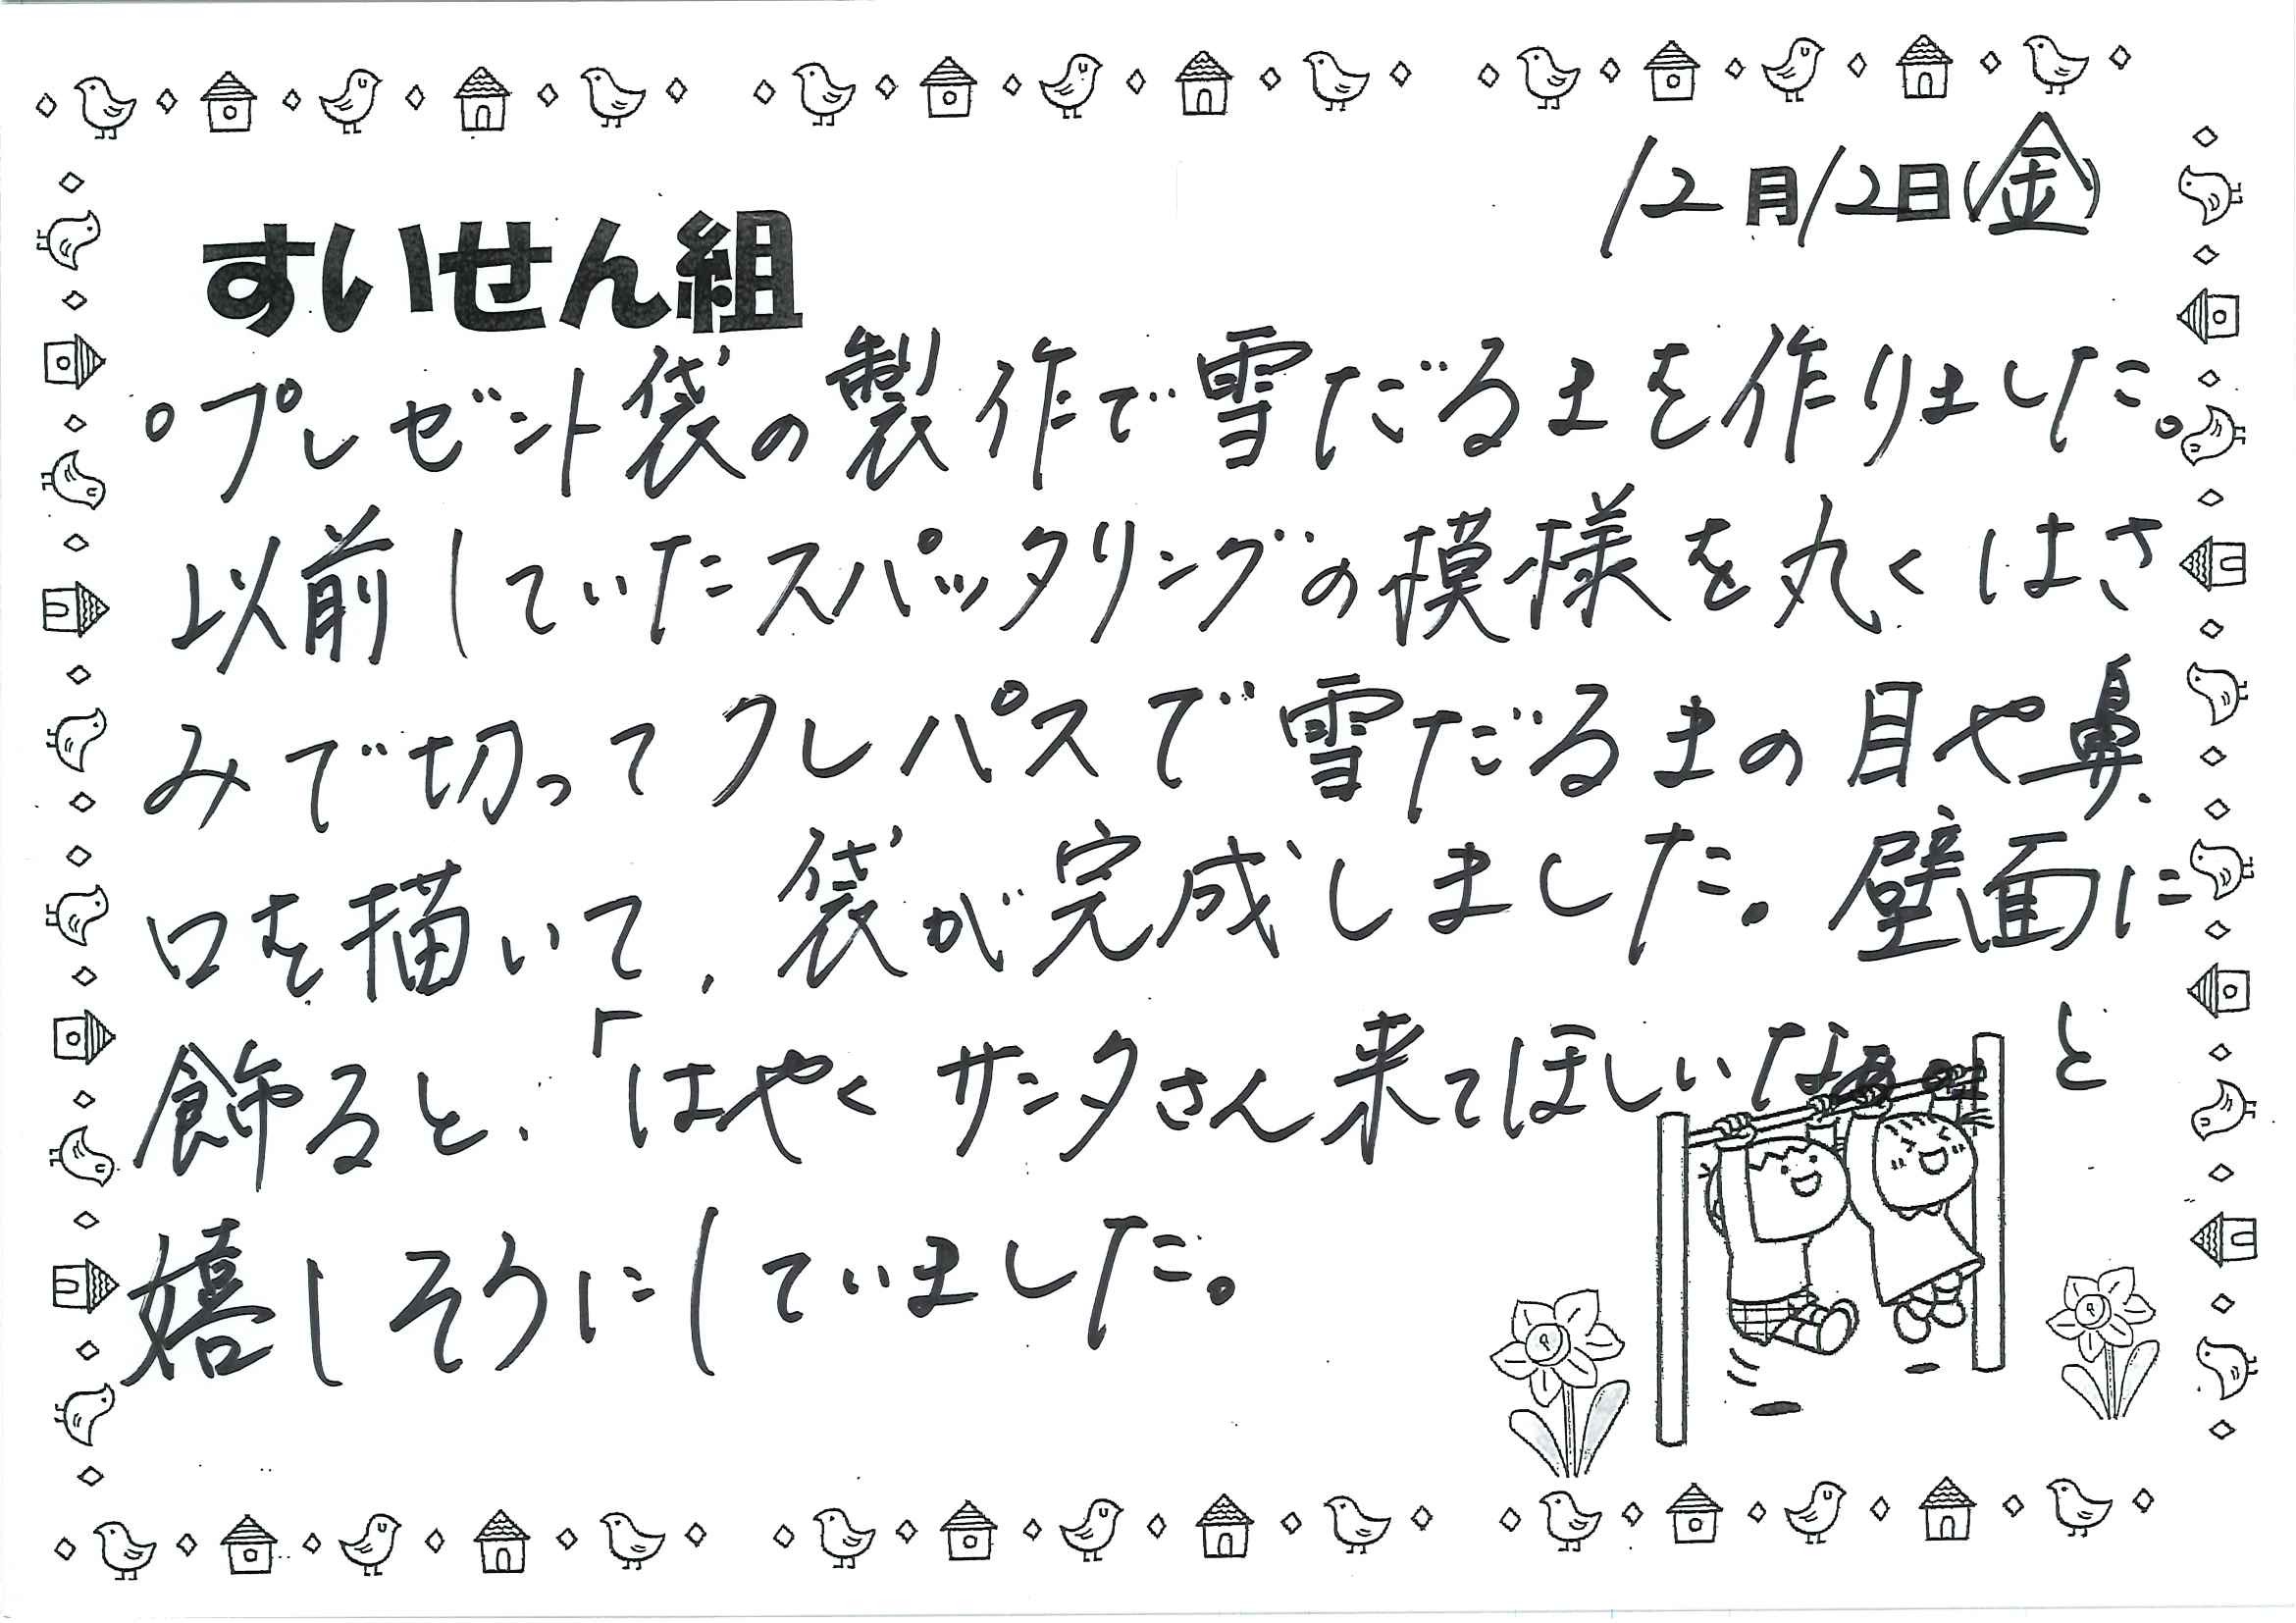 12月12日(金)
すいせん組
○プレゼント袋の製作で雪だるまを作りました。
以前していたスパッタリングの模様を丸くはさ
みで切ってクレパスで雪だるまの目や鼻、
口を描いて、袋が完成しました。壁面に
飾ると、「はやくサンタさん来てほしいなぁ と
嬉しそうにしていました。